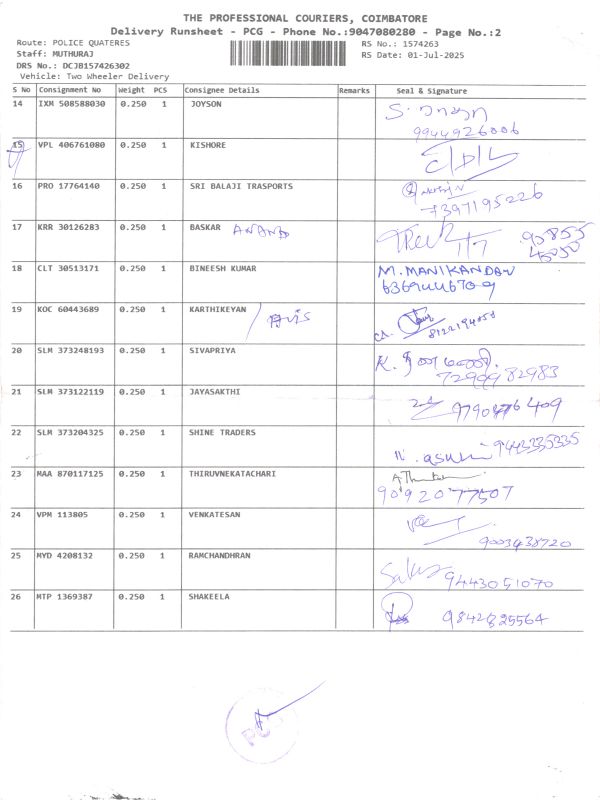 THE PROFESSIONAL COURIERS, COIMBATORE
Delivery Runsheet - PCG - Phone No.:9047080280 - Page No.:2
Route: POLICE QUATERES RS No.: 1574263
Staff: MUTHURAJ RS Date: 01-Jul-2025
DRS No.: DCJB157426302
Vehicle: Two Wheeler Delivery
S No Consignment No Weight PCS Consignee Details Remarks Seal & Signature
14 IXM 508588030 0.250 1 JOYSON
9944926006
15 VPL 406761080 0.250 1 KISHORE
16 PRO 17764140 0.250 1 SRI BALAJI TRASPORTS
7397195226
17 KRR 30126283 0.250 1 BASKAR ANAND
18 CLT 30513171 0.250 1 BINEESH KUMAR M. MANIKANDAN
6369446709
19 KOC 60443689 0.250 1 KARTHIKEYAN
20 SLM 373248193 0.250 1 SIVAPRIYA
7299982983
21 SLM 373122119 0.250 1 JAYASAKTHI
22 SLM 373204325 0.250 1 SHINE TRADERS 9443335335
23 MAA 870117125 0.250 1 THIRUVNEKATACHARI
9092077507
24 VPM 113805 0.250 1 VENKATESAN
9003438720
25 MYD 4208132 0.250 1 RAMCHANDHRAN
9443051070
26 MTP 1369387 0.250 1 SHAKEELA